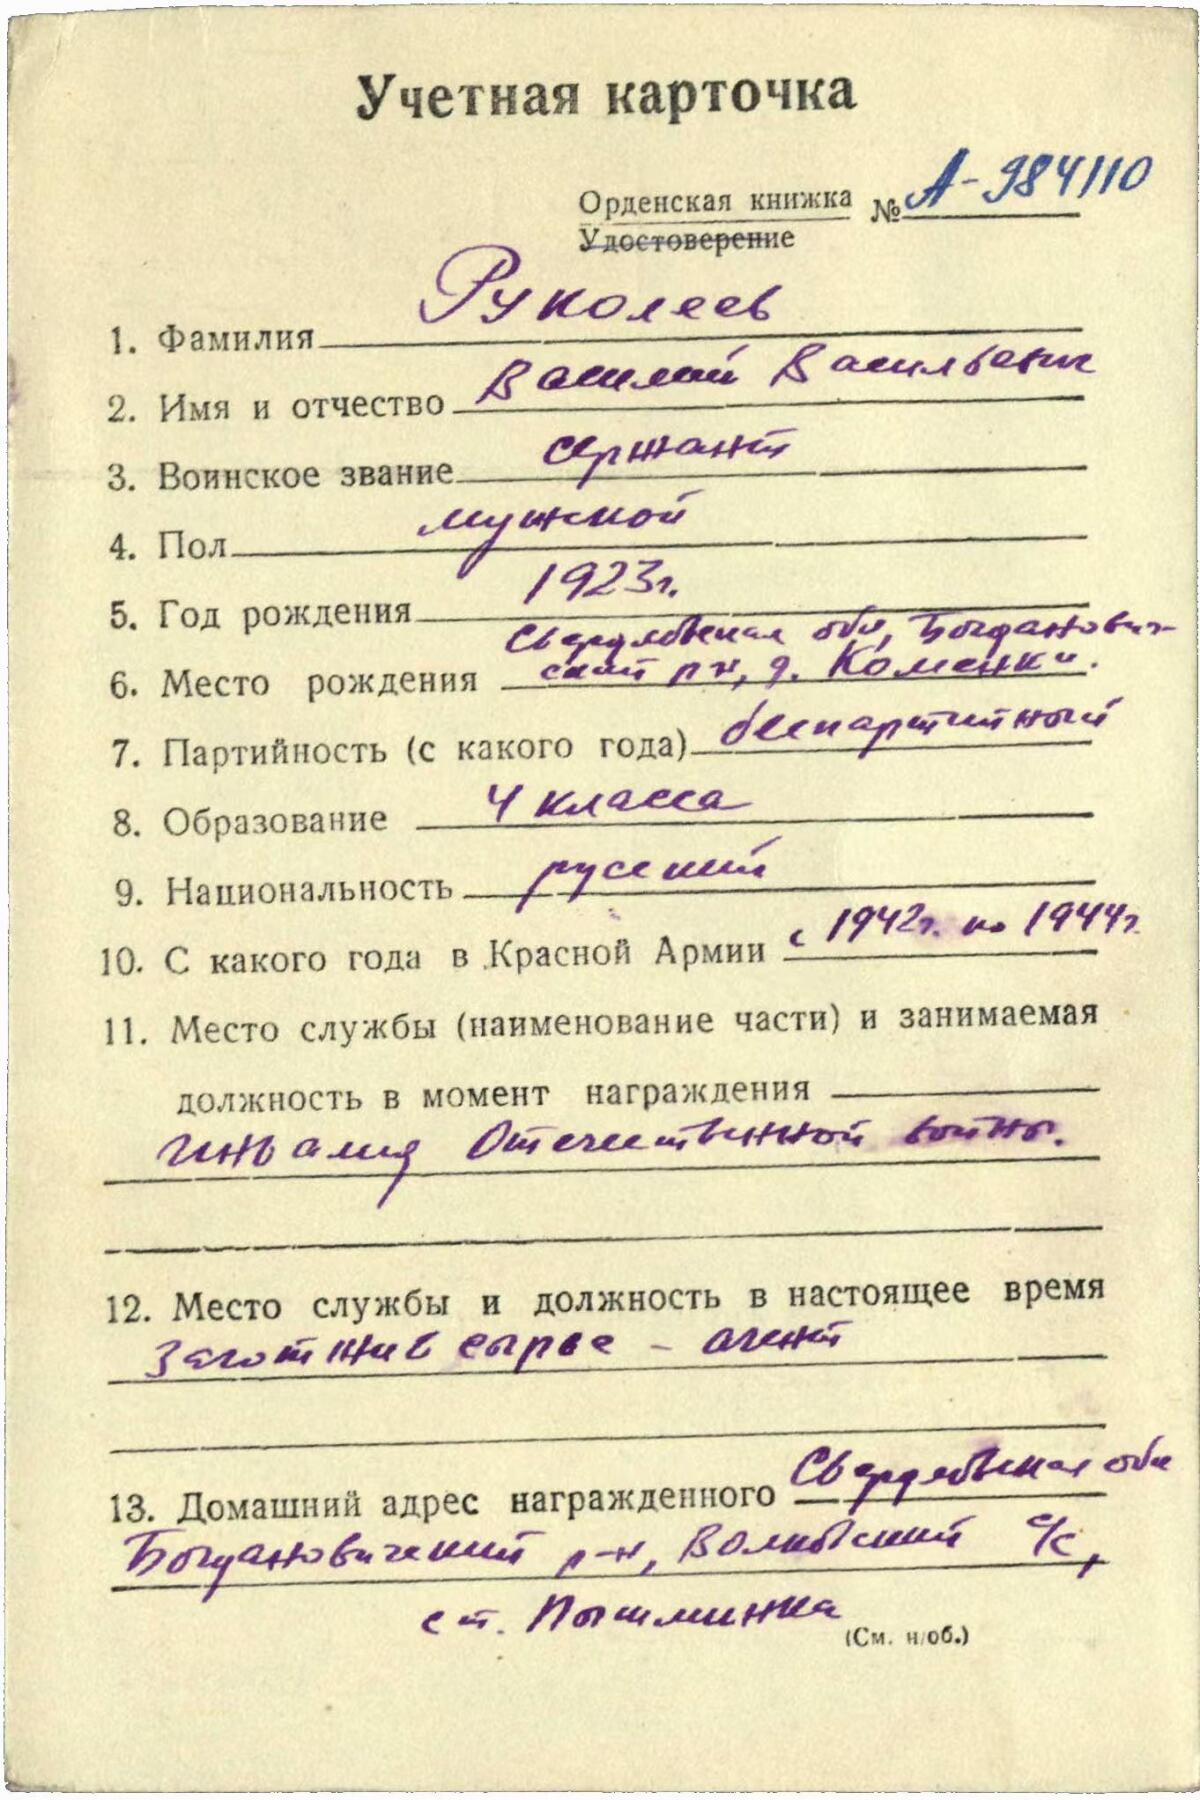 Учетная карточка
Орденская книжка № А-984110
Удостоверение
1. Фамилия Руколеев
2. Имя и отчество Василий Васильевич
3. Воинское звание сержант
4. Пол мужской
5. Год рождения 1923г.
6. Место рождения Свердловская обл, Богданович-
ский р-н, д. Коменки.
7. Партийность (с какого года) беспартийный
8. Образование 4 класса
9. Национальность русский
10. С какого года в Красной Армии с 1942г. по 1944г.
11. Место службы (наименование части) и занимаемая
должность в момент награждения
инвалид Отечественной войны.
12. Место службы и должность в настоящее время
Заготживсырье - агент
13. Домашний адрес награжденного Свердловская обл
Богдановический р-н, Волковский с/с,
ст. Пышминка
(См. н/об.)